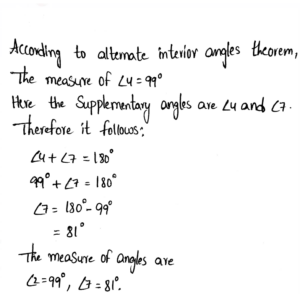 According to alternate interior angles theorem,
The measure of ∠4 = 99°
Here the Supplementary angles are ∠4 and ∠7.
Therefore it follows:
∠4 + ∠7 = 180°
99° + ∠7 = 180°
∠7 = 180° - 99°
= 81°
The measure of angles are
∠2 = 99°, ∠7 = 81°.